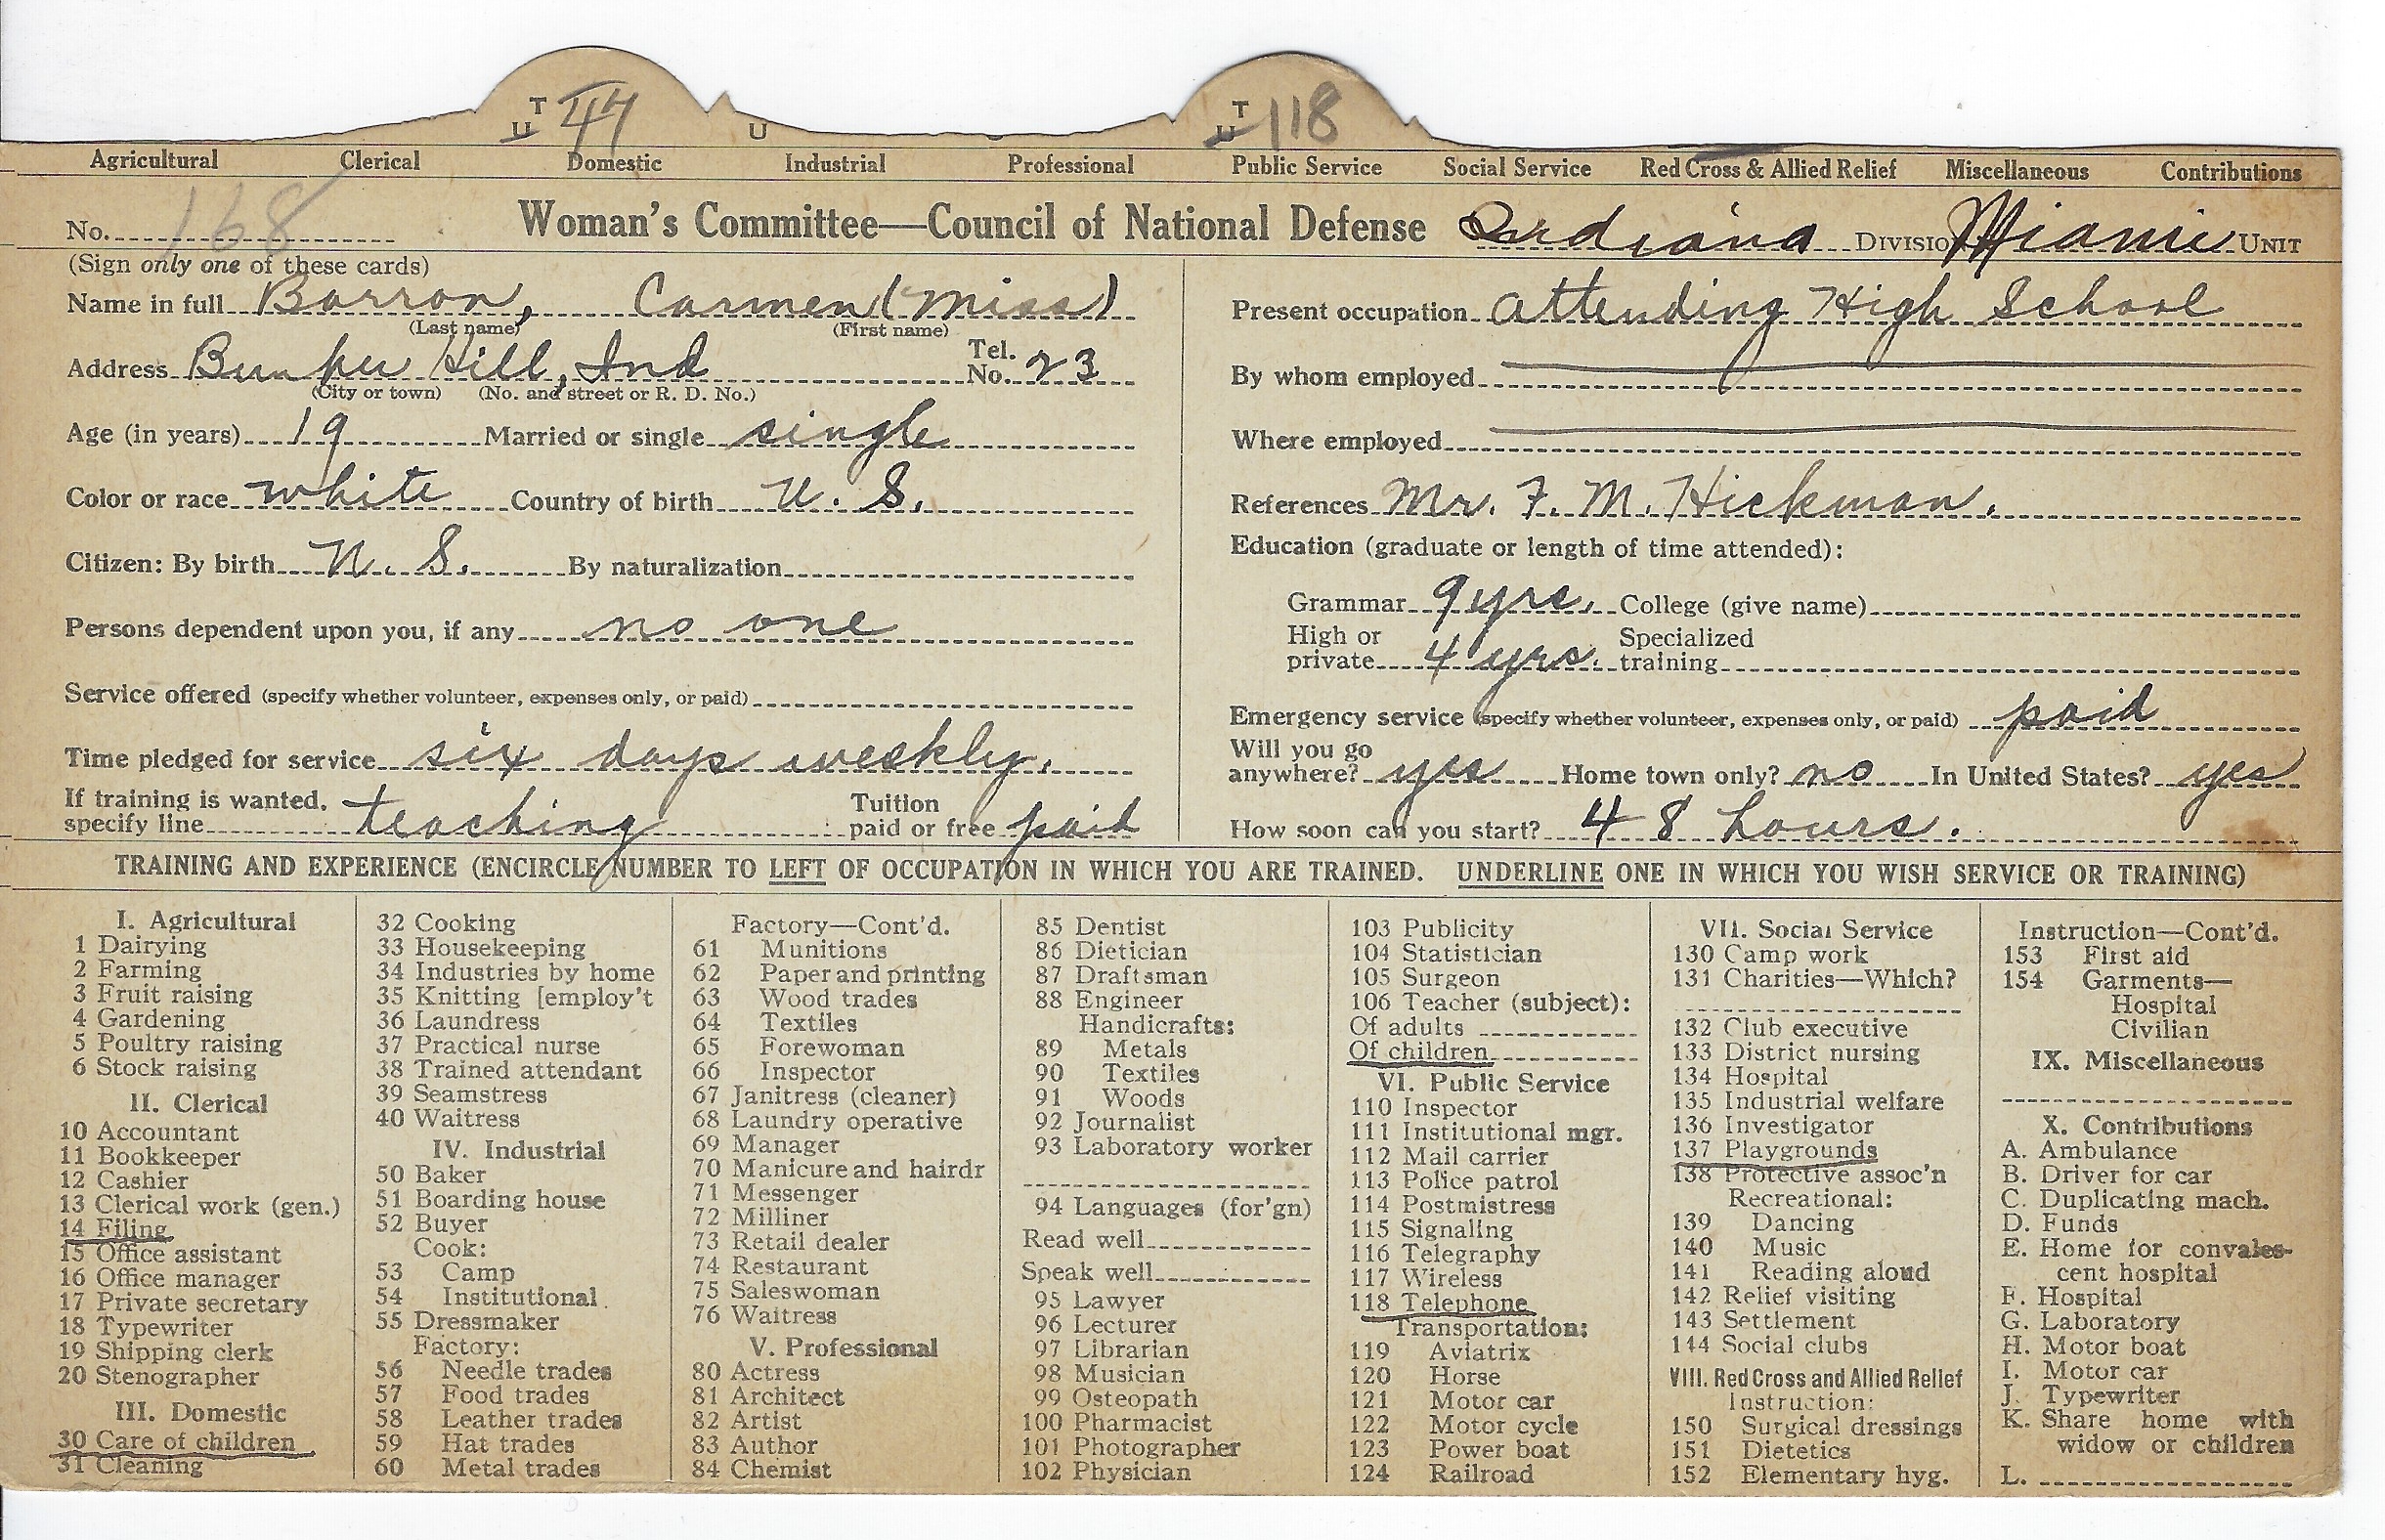 T U 47 U T U 118
Agricultural Clerical Domestic Industrial Professional Public Service Social Service Red Cross & Allied Relief Miscellaneous Contributions
No. 168 Woman's Committee—Council of National Defense Indiana DIVISION Miami UNIT
(Sign only one of these cards)
Name in full Barron, Carmen (Miss)
(Last name) (First name)
Address Bunker Hill, Ind Tel. No. 23
(City or town) (No. and street or R. D. No.)
Age (in years) 19 Married or single single
Color or race white Country of birth U. S.
Citizen: By birth U. S. By naturalization
Persons dependent upon you, if any no one
Service offered (specify whether volunteer, expenses only, or paid)
Time pledged for service six days weekly.
If training is wanted, specify line teaching Tuition paid or free paid
Present occupation attending High School
By whom employed
Where employed
References Mr. F. M. Hickman.
Education (graduate or length of time attended):
Grammar 9 yrs. College (give name)
High or private 4 yrs. Specialized training
Emergency service (specify whether volunteer, expenses only, or paid) paid
Will you go anywhere? yes Home town only? no In United States? yes
How soon can you start? 48 hours.
TRAINING AND EXPERIENCE (ENCIRCLE NUMBER TO LEFT OF OCCUPATION IN WHICH YOU ARE TRAINED. UNDERLINE ONE IN WHICH YOU WISH SERVICE OR TRAINING)
I. Agricultural
1 Dairying
2 Farming
3 Fruit raising
4 Gardening
5 Poultry raising
6 Stock raising
II. Clerical
10 Accountant
11 Bookkeeper
12 Cashier
13 Clerical work (gen.)
14 Filing
15 Office assistant
16 Office manager
17 Private secretary
18 Typewriter
19 Shipping clerk
20 Stenographer
III. Domestic
30 Care of children
31 Cleaning
32 Cooking
33 Housekeeping
34 Industries by home
35 Knitting [employ't
36 Laundress
37 Practical nurse
38 Trained attendant
39 Seamstress
40 Waitress
IV. Industrial
50 Baker
51 Boarding house
52 Buyer
Cook:
53 Camp
54 Institutional
55 Dressmaker
Factory:
56 Needle trades
57 Food trades
58 Leather trades
59 Hat trades
60 Metal trades
Factory—Cont'd.
61 Munitions
62 Paper and printing
63 Wood trades
64 Textiles
65 Forewoman
66 Inspector
67 Janitress (cleaner)
68 Laundry operative
69 Manager
70 Manicure and hairdr
71 Messenger
72 Milliner
73 Retail dealer
74 Restaurant
75 Saleswoman
76 Waitress
V. Professional
80 Actress
81 Architect
82 Artist
83 Author
84 Chemist
85 Dentist
86 Dietician
87 Draftsman
88 Engineer
Handicrafts:
89 Metals
90 Textiles
91 Woods
92 Journalist
93 Laboratory worker
94 Languages (for'gn)
Read well
Speak well
95 Lawyer
96 Lecturer
97 Librarian
98 Musician
99 Osteopath
100 Pharmacist
101 Photographer
102 Physician
103 Publicity
104 Statistician
105 Surgeon
106 Teacher (subject):
Of adults
Of children
VI. Public Service
110 Inspector
111 Institutional mgr.
112 Mail carrier
113 Police patrol
114 Postmistress
115 Signaling
116 Telegraphy
117 Wireless
118 Telephone
Transportation:
119 Aviatrix
120 Horse
121 Motor car
122 Motor cycle
123 Power boat
124 Railroad
VII. Social Service
130 Camp work
131 Charities—Which?
132 Club executive
133 District nursing
134 Hospital
135 Industrial welfare
136 Investigator
137 Playgrounds
138 Protective assoc'n
Recreational:
139 Dancing
140 Music
141 Reading aloud
142 Relief visiting
143 Settlement
144 Social clubs
VIII. Red Cross and Allied Relief
Instruction:
150 Surgical dressings
151 Dietetics
152 Elementary hyg.
Instruction—Cont'd.
153 First aid
154 Garments—
Hospital
Civilian
IX. Miscellaneous
X. Contributions
A. Ambulance
B. Driver for car
C. Duplicating mach.
D. Funds
E. Home for convales-
cent hospital
F. Hospital
G. Laboratory
H. Motor boat
I. Motor car
J. Typewriter
K. Share home with
widow or children
L.